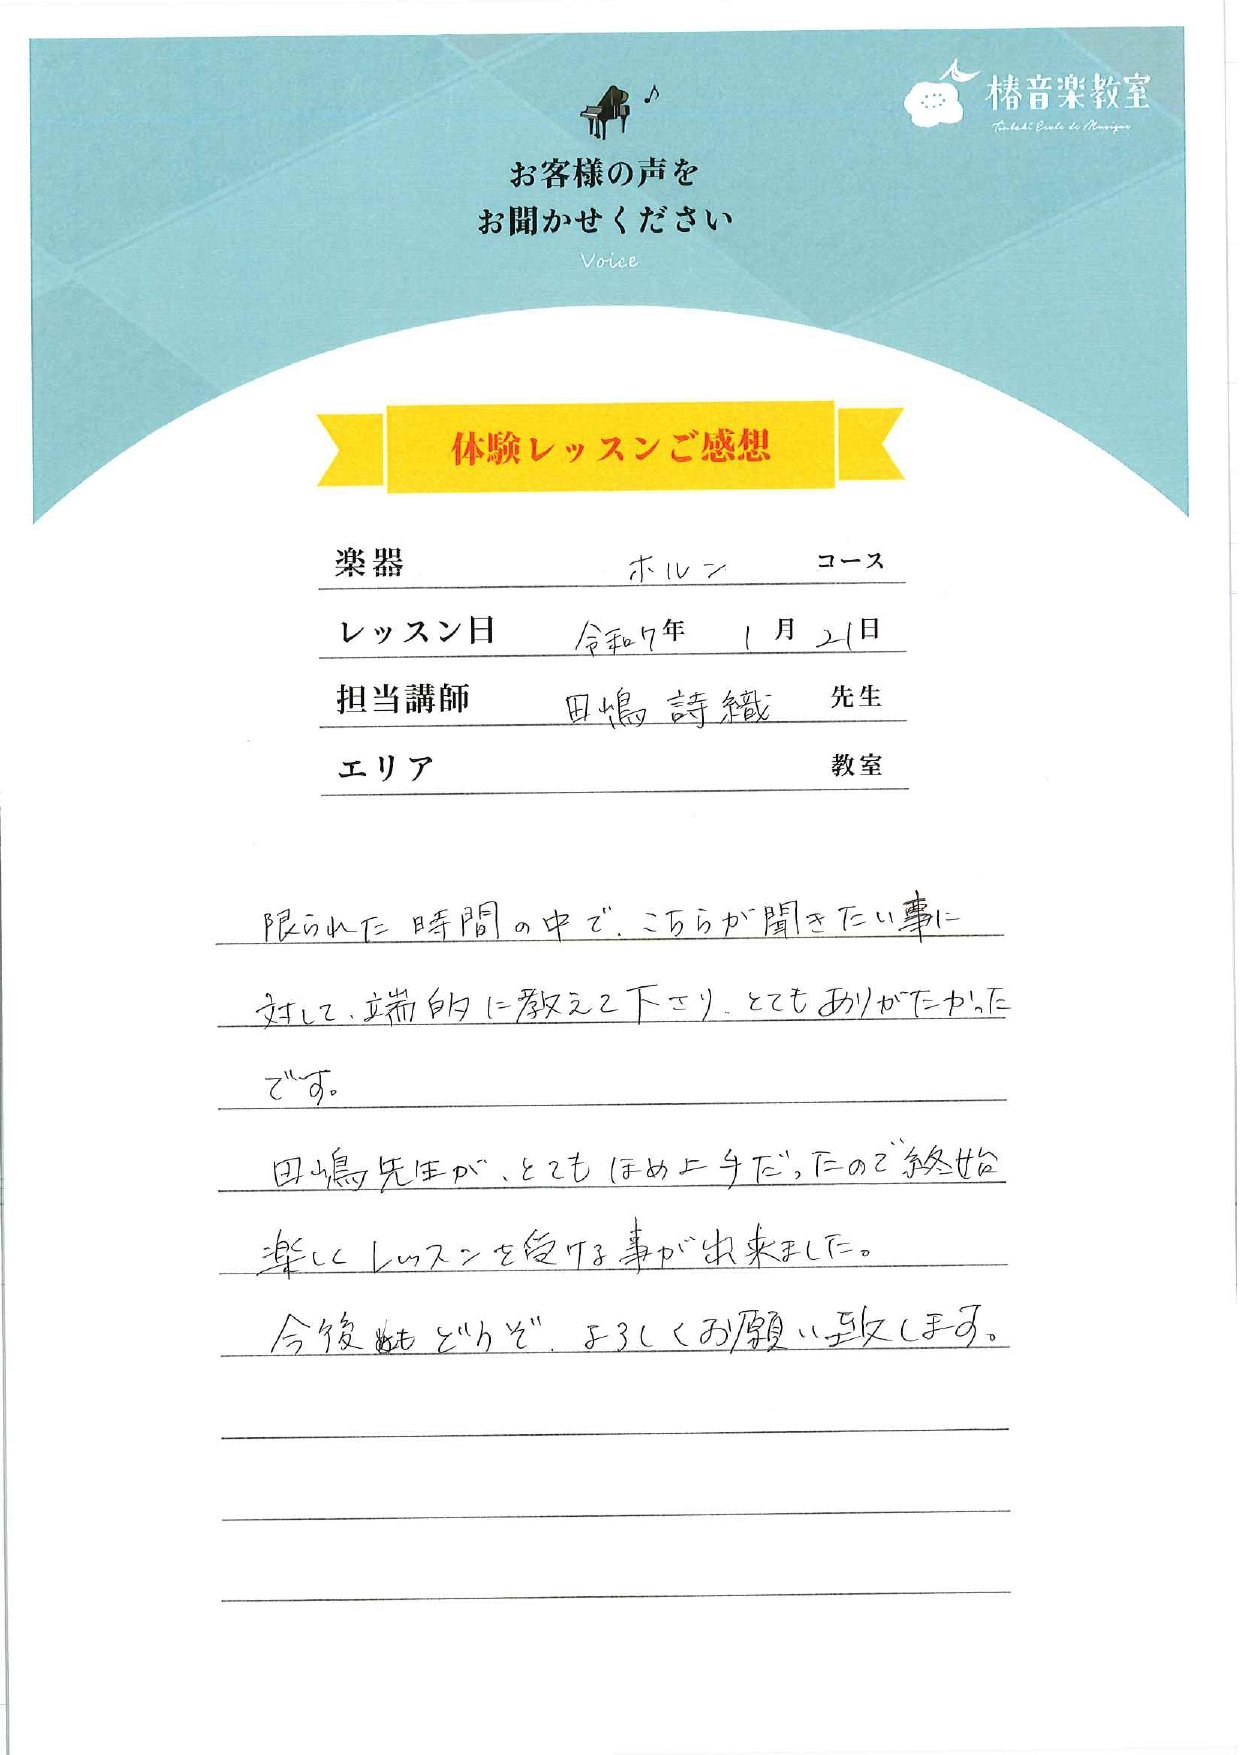 椿音楽教室
Tsubaki Ecole de Musique
お客様の声を
お聞かせください
Voice
体験レッスンご感想
楽器 ホルン コース
レッスン日 令和7年 1月21日
担当講師 田嶋 詩織 先生
エリア 教室
限られた時間の中で、こちらが聞きたい事に
対して、端的に教えて下さり、とてもありがたかった
です。
田嶋先生が、とてもほめ上手だったので終始
楽しくレッスンを受ける事が出来ました。
今後もどうぞ、よろしくお願い致します。